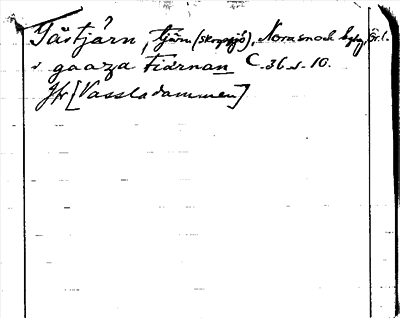 Gåstjärn, tjärn (skogssjö), Nora snoch bg, Ör. l.
v gaaza tiärnan C.36.s.10.
Jfr [Vassladammen]